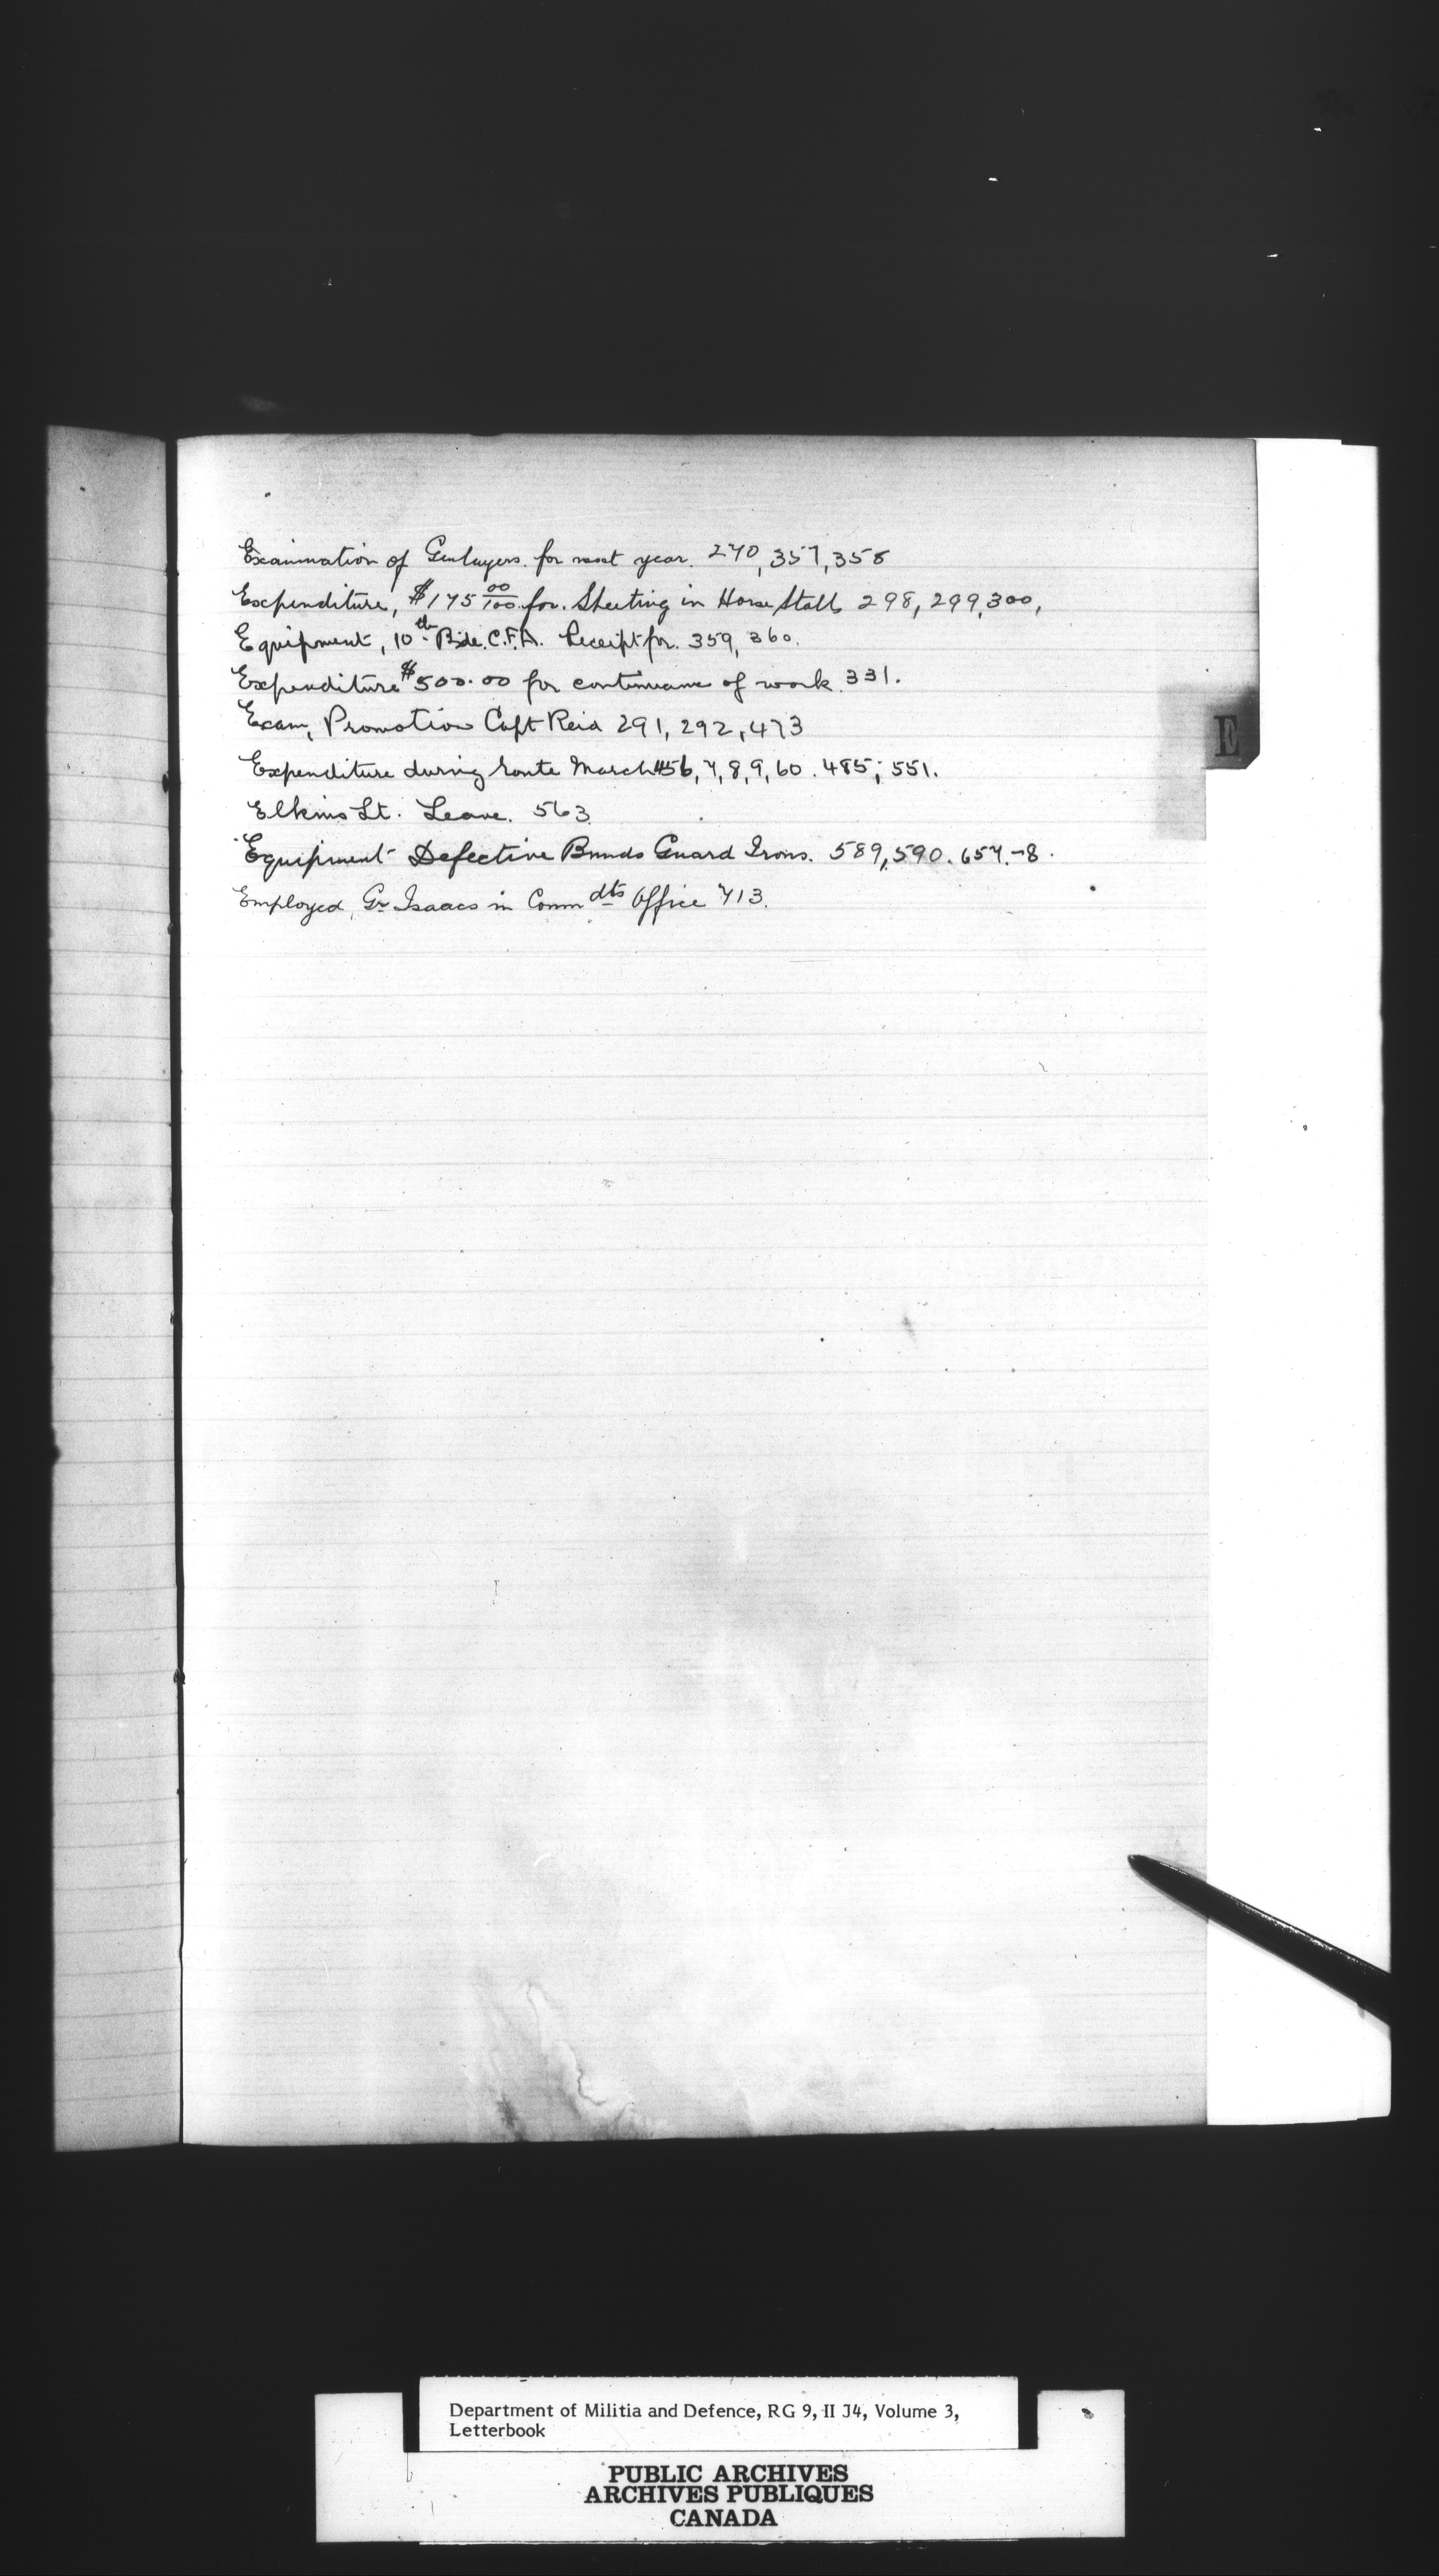 Examination of Gunlayers. for next year. 270, 357, 358
Expenditure, $175 00/100 for. Sheeting in Horse Stalls 298, 299, 300,
Equipment, 10th Bde. C.F.A. Receipt for. 359, 360.
Expenditure $500.00 for continuance of work. 331.
Exam, Promotion Capt Reid 291, 292, 473
E
Expenditure during route March 456, 7, 8, 9, 60. 485; 551.
Elkins Lt. Leave. 563
Equipment Defective Guard Irons. 589, 590. 657.-8.
Employed, Gr Isaacs in Commdts Office 713.
Department of Militia and Defence, RG 9, II J4, Volume 3,
Letterbook
PUBLIC ARCHIVES
ARCHIVES PUBLIQUES
CANADA